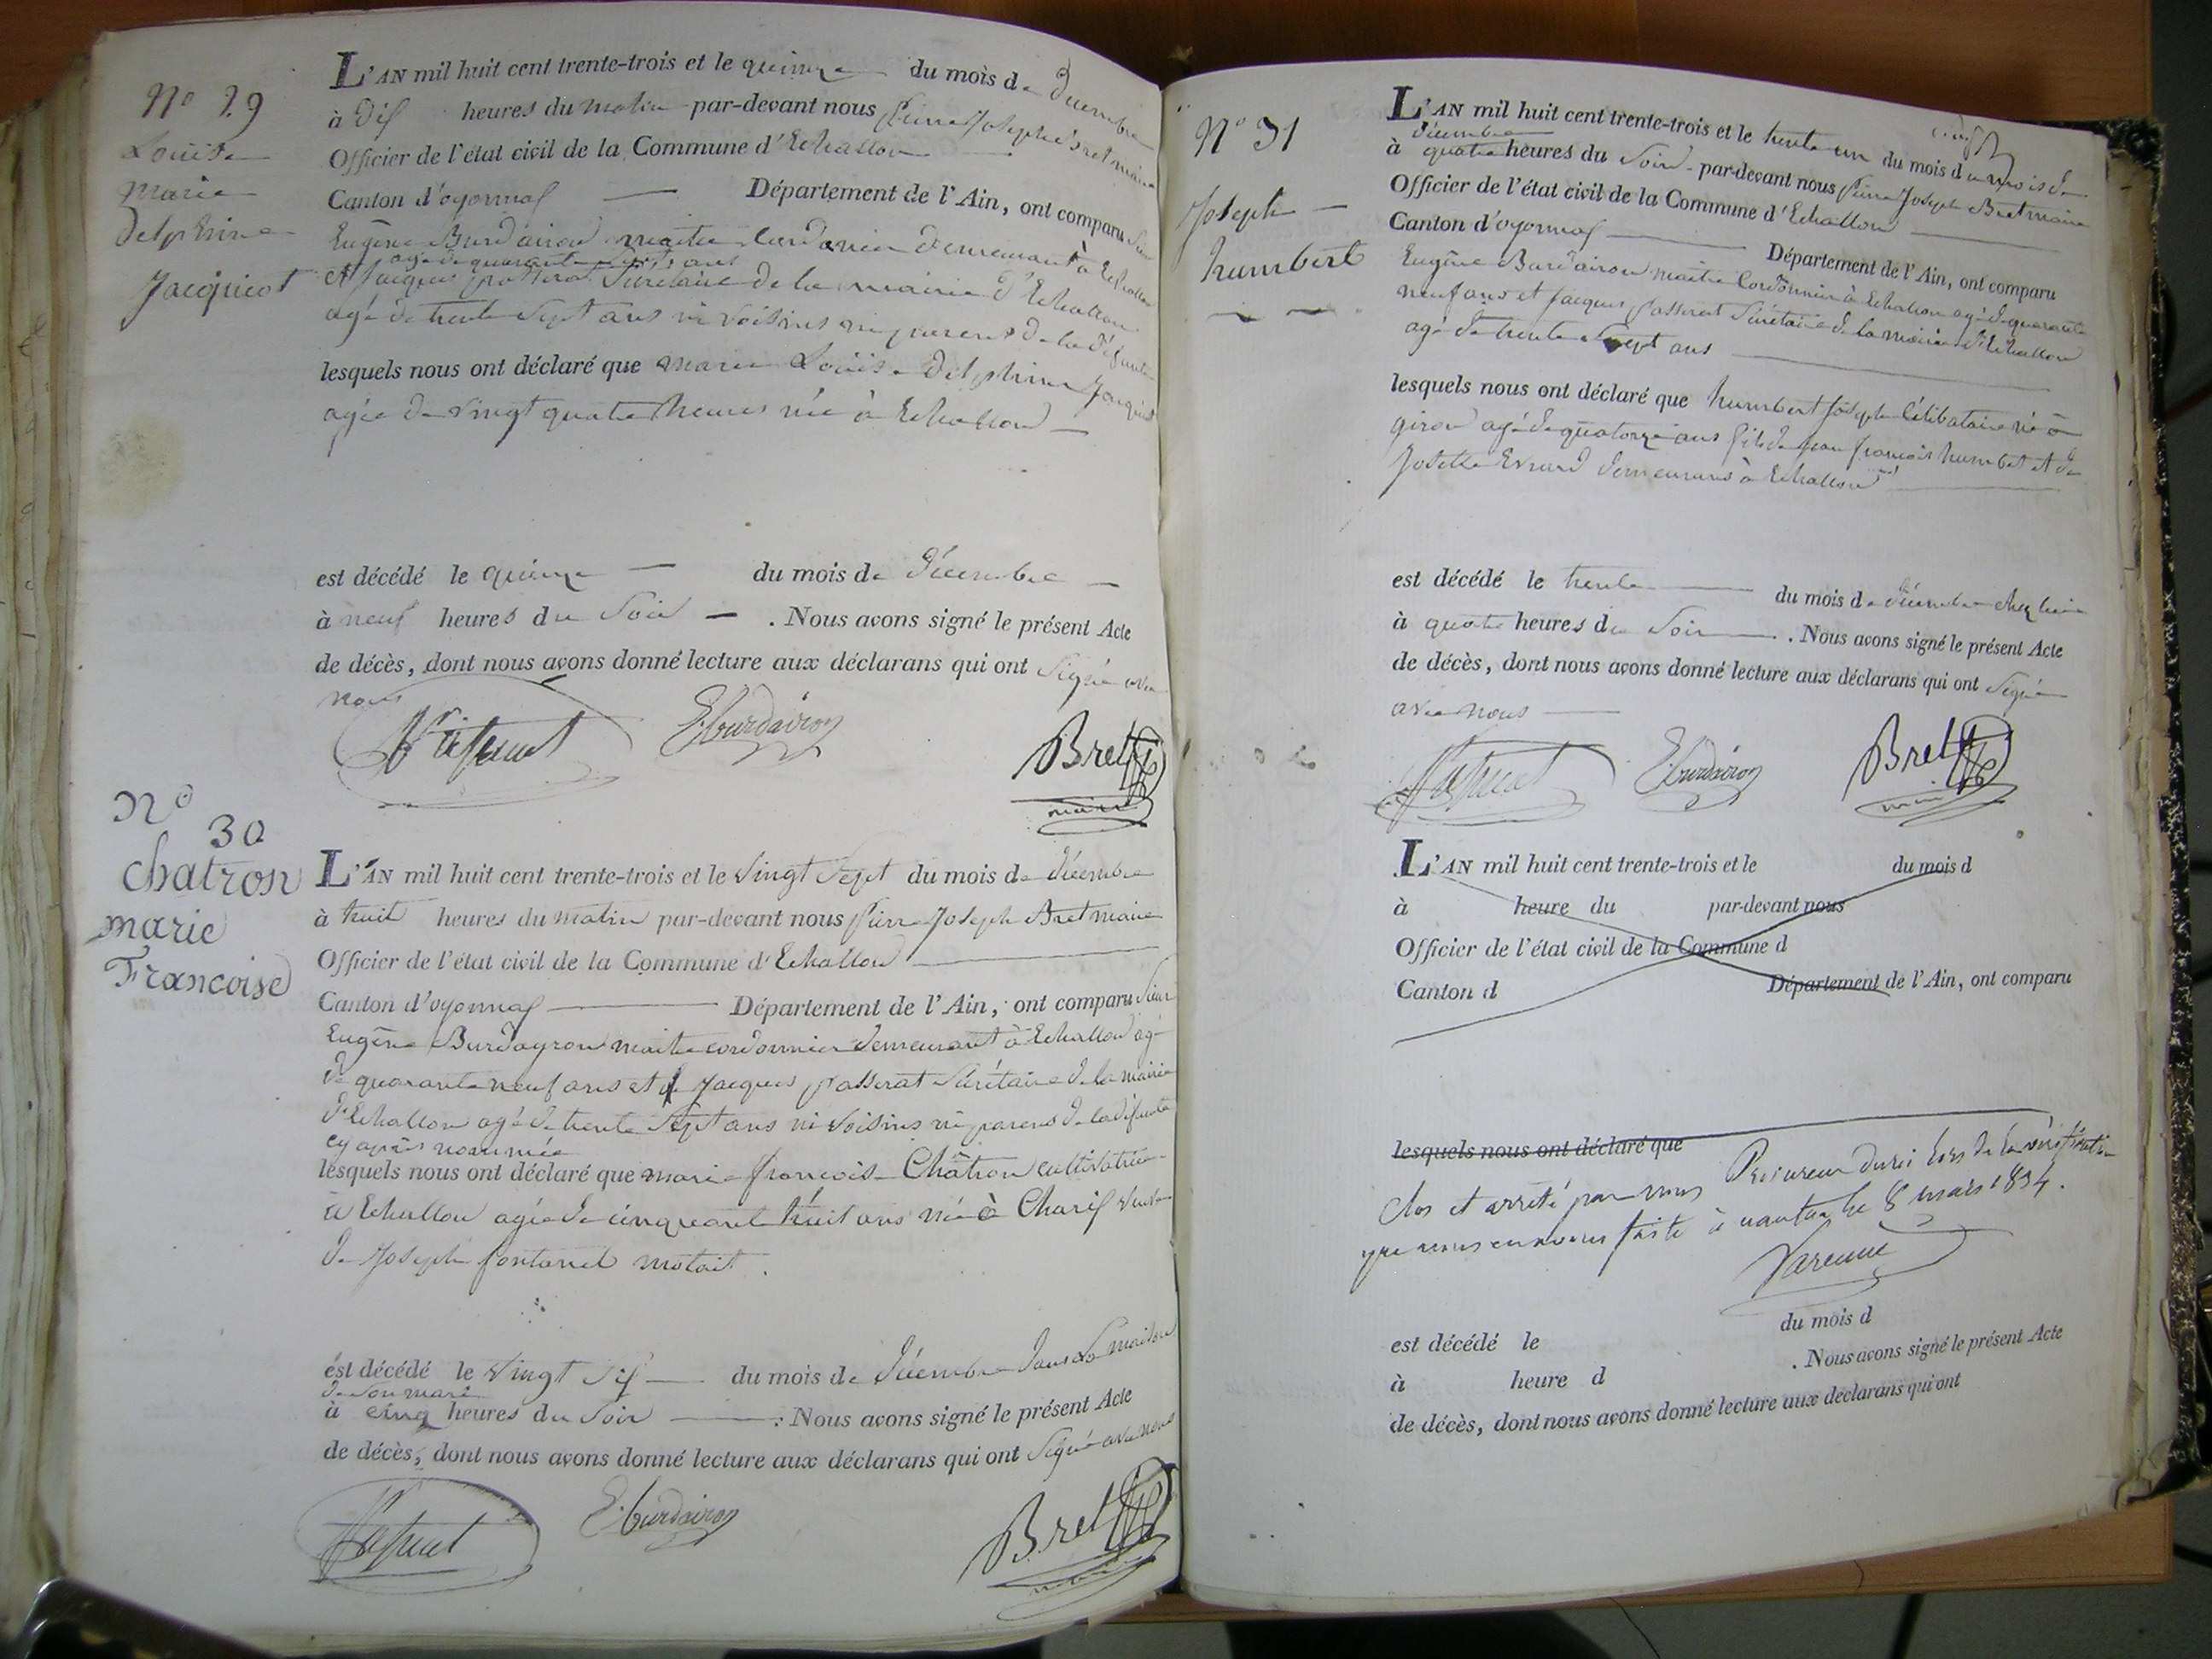 N° 29
Louise
marie
Delphine
Jacquiot
L'AN mil huit cent trente-trois et le quinze du mois de Décembre
à dix heures du matin par-devant nous Pierre Joseph Bret maire
Officier de l'état civil de la Commune d'Echallon
Canton d'oyonnax Département de l'Ain, ont comparu Sieur
Eugène Burdairon maitre cordonnier demeurant à Echallon
agé de quarante neuf ans
et Jacques passerat Sécrétaire de la mairie d'Echallon
agé de trente Sept ans ni voisins ni parens de la défunte
lesquels nous ont déclaré que marie Louise Delphine Jacquiot
agée de vingt quatre heures née à Echallon
est décédé le quinze du mois de Décembre
à neuf heures du Soir . Nous avons signé le présent Acte
de décès, dont nous avons donné lecture aux déclarans qui ont Signé avec
nous
E. burdairon
Bret
maire
N°
30
Chatron
marie
Francoise
L'AN mil huit cent trente-trois et le vingt Sept du mois de décembre
à huit heures du matin par-devant nous Pierre Joseph Bret maire
Officier de l'état civil de la Commune d'Echallon
Canton d'oyonnax Département de l'Ain, ont comparu Sieur
Eugène Burdayron maitre cordonnier demeurant à Echallon agé
de quarante neuf ans et Jacques passerat Sécrétaire de la mairie
d'Echallon agé de trente Sept ans ni voisins ni parens de la défunte
cy après nommée
lesquels nous ont déclaré que marie françoise Châtron cultivatrice
à Echallon agée de cinquante huit ans née à Charix veuve
de Joseph fontanel
est décédé le vingt Six du mois de décembre dans la maison
de son mari
à cinq heures du Soir . Nous avons signé le présent Acte
de décès, dont nous avons donné lecture aux déclarans qui ont Signé avec nous
E. burdairon
Bret
maire
N° 31
Joseph
humbert
L'AN mil huit cent trente-trois et le trente un du mois du mois de
décembre
à quatre heures du Soir par-devant nous Pierre Joseph Bret maire
Officier de l'état civil de la Commune d'Echallon
Canton d'oyonnax Département de l'Ain, ont comparu
Eugène Burdairon maitre Cordonnier à Echallon agé de quarante
neuf ans et Jacques passerat Sécrétaire de la mairie d'Echallon
agé de trente Sept ans
lesquels nous ont déclaré que humbert Joseph célibataire né à
giron agé de quatorze ans fils de jean françois humbert et de
Josette Evrard demeurans à Echallon
est décédé le trente du mois de décembre chez lui
à quatre heures du Soir . Nous avons signé le présent Acte
de décès, dont nous avons donné lecture aux déclarans qui ont Signé
avec nous
E. burdairon
Bret
maire
L'AN mil huit cent trente-trois et le du mois d
à heure du par-devant nous
Officier de l'état civil de la Commune d
Canton d Département de l'Ain, ont comparu
lesquels nous ont déclaré que
Clos et arrêté par nous Procureur du roi lors de la vérification
que nous en avons faite à nantua le 8 mars 1834.
Varenne
est décédé le du mois d
à heure d . Nous avons signé le présent Acte
de décès, dont nous avons donné lecture aux déclarans qui ont